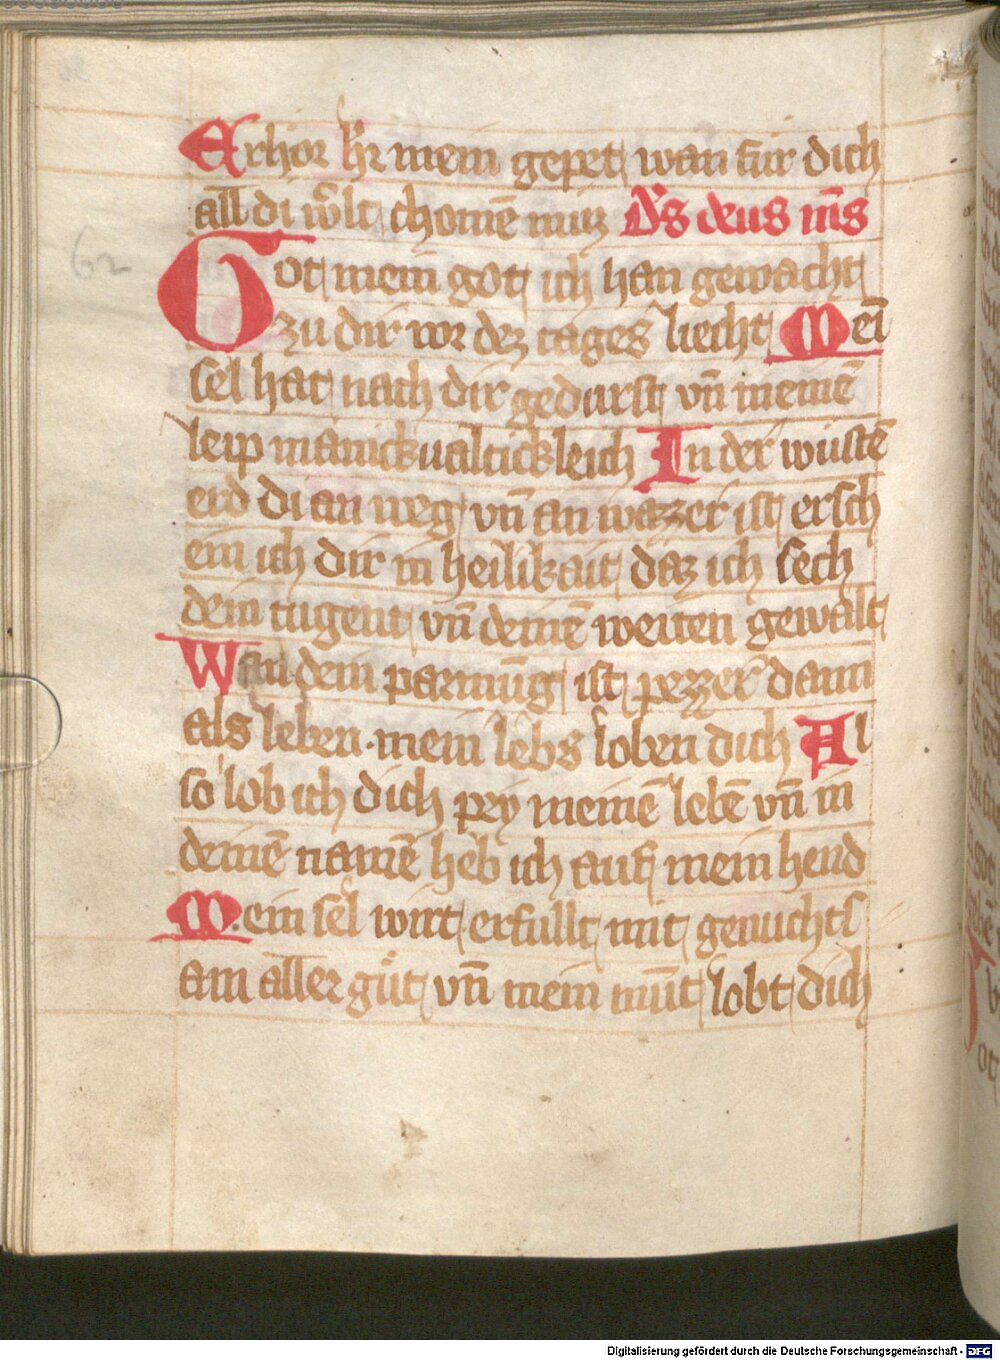 Erhor hr mein gepet wan fur dich
all di w̃lt chomẽ muz D̃s deus m̃s
62
Got mein got ich han gewacht
zu dir vor dez tages liecht Mei̅
sel hat nach dir gedurst vn̅ meine̅
leip manickualtickleich In der wuste̅
erd di an weg vn̅ an wazzer ist ersch
ein ich dir in heilikait daz ich sech
dein tugent vn̅ deine̅ weiten gewalt
Wan dein parmu̅g ist pezzer dann
als leben mein lebs loben dich Al
so lob ich dich pey meine̅ lebe̅ vn̅ in
deine̅ name̅ heb ich auf mein hend
Mein sel wirt erfullt mit genuchts
am aller gut vn̅ mein mu̅t lobt dich
Digitalisierung gefördert durch die Deutsche Forschungsgemeinschaft - DFG